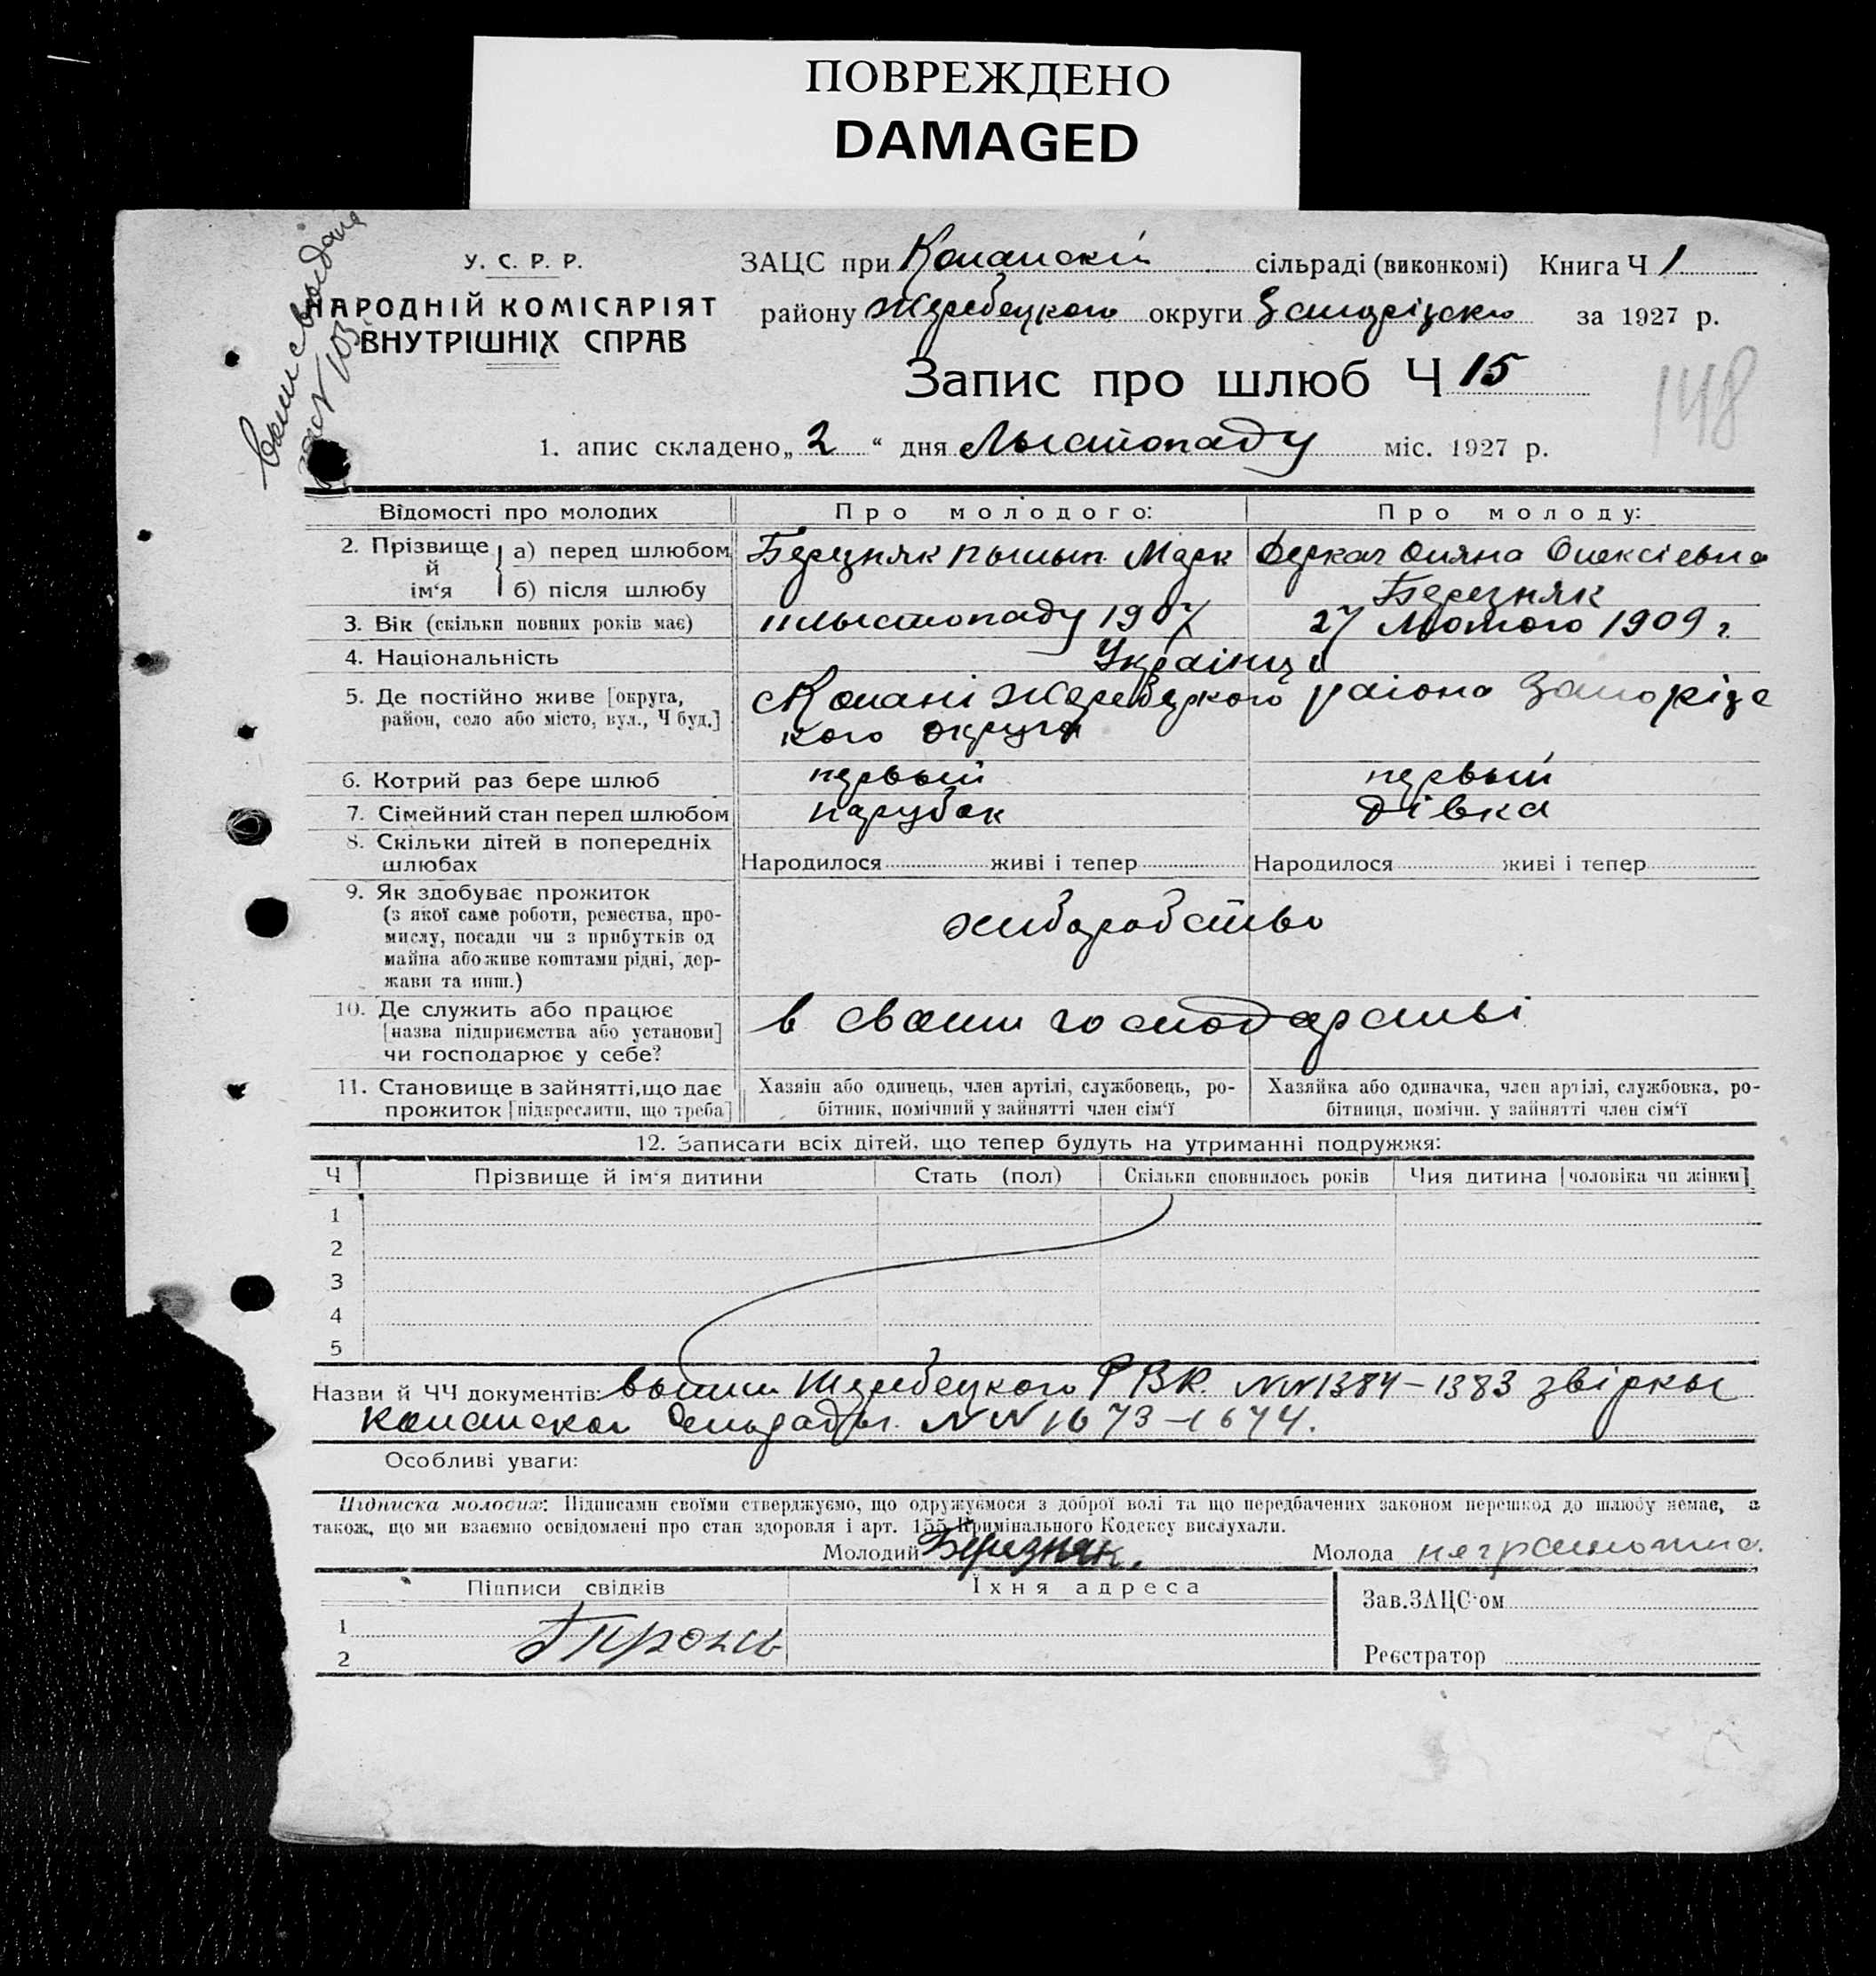 ПОВРЕЖДЕНО
DAMAGED
У. С. Р. Р.
НАРОДНІЙ КОМІСАРІЯТ
ВНУТРІШНІХ СПРАВ
ЗАЦС при Копанскій сільраді (виконкомі) Книга Ч 1
району Жеребецкого округи за 1927 р.
Запис про шлюб Ч 15
148
1. апис складено „ 2 “ дня Лыстопаду міс. 1927 р.
Відомості про молодих
Про молодого:
Про молоду:
2. Прізвище й ім‘я
а) перед шлюбом
Березняк Пылып Марк
Деркач Ояна Олексіевна
б) після шлюбу
Березняк
3. Вік (скільки повних років має)
11 лыстопаду 1907
27 Лютого 1909 г
4. Національність
Українці
5. Де постійно живе [округа,
район, село або місто, вул., Ч буд.]
с Копані Жеребецкого раіона Запорізс
кого округа
6. Котрий раз бере шлюб
первый
первый
7. Сімейний стан перед шлюбом
парубок
дівка
8. Скільки дітей в попередніх
шлюбах
Народилося живі і тепер
Народилося живі і тепер
9. Як здобуває прожиток
(з якої саме роботи, ремества, про-
мислу, посади чи з прибутків од
майна або живе коштами рідні, дер-
жави та инш.)
хлиборобство
10. Де служить або працює
[назва підприємства або установи]
чи господарює у себе?
в своим господарстві
11. Становище в зайнятті, що дає
прожиток [підкреслити, що треба]
Хазяін або одинець, член артілі, службовець, ро-
бітник, помічний у зайнятті член сім‘ї
Хазяйка або одиначка, член артілі, службовка, ро-
бітниця, помічн. у зайнятті член сім‘ї
12. Записати всіх дітей, що тепер будуть на утриманні подружжя:
Ч
Прізвище й ім‘я дитини
Стать (пол)
Скільки сповнилось років
Чия дитина [чоловіка чи жінки]
1
2
3
4
5
Назви й ЧЧ документів: Жеребецкого РВК. NN 1384 – 1383 звіркы
Копанскои NN 1673 – 1674.
Особливі уваги:
Підписка молодих: Підписами своїми стверджуємо, що одружуємося з доброї волі та що передбачених законом перешкод до шлюбу немає, а
також, що ми взаємно освідомлені про стан здоровля і арт. 155 Кримінального Кодексу вислухали.
Молодий Березняк.
Молода неграмотна.
Підписи свідків
Їхня адреса
Зав. ЗАЦС‘ом
1
2
Реєстратор